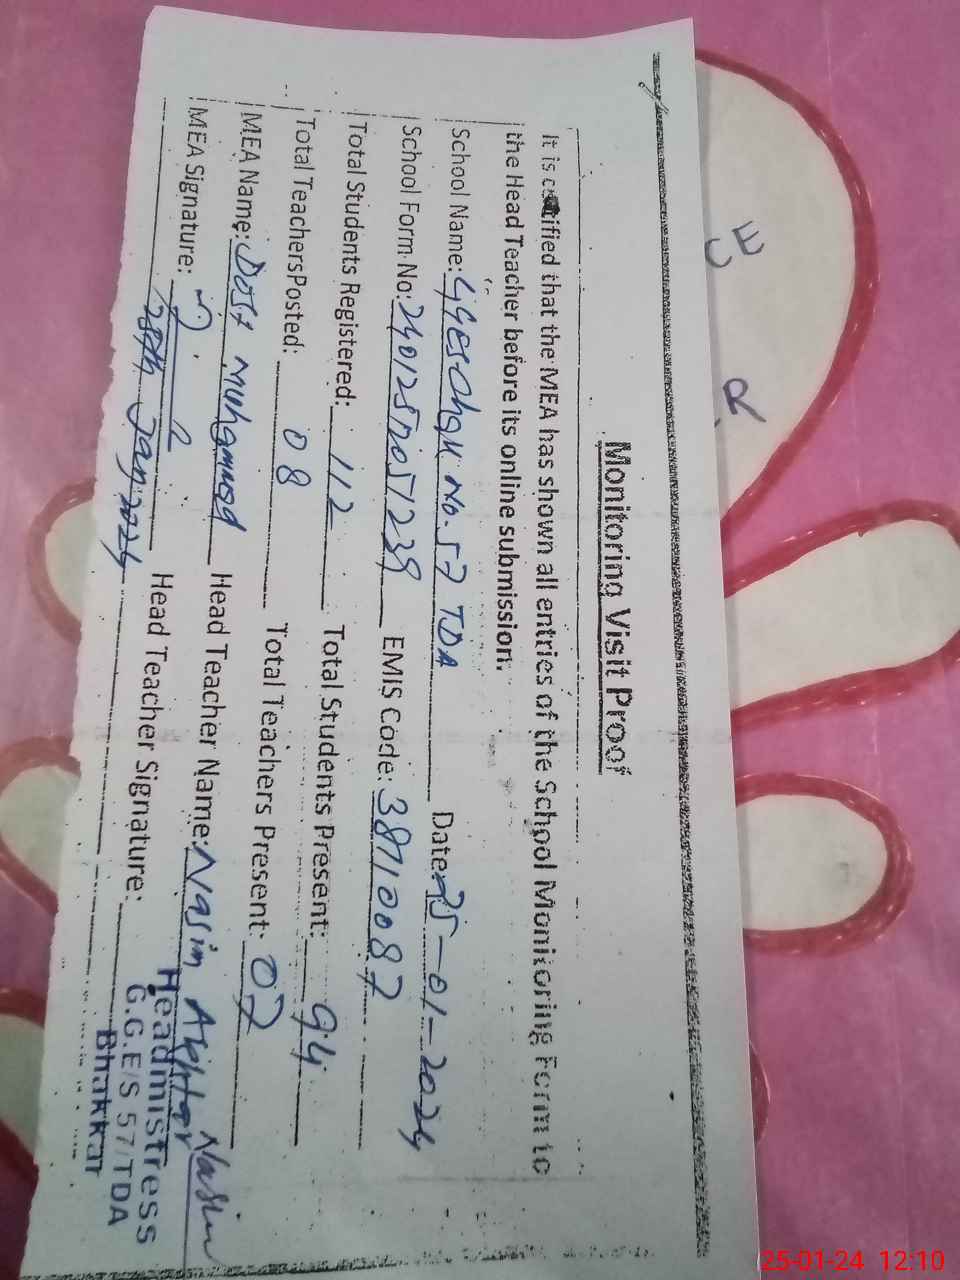 Monitoring Visit Proof
It is certified that the MEA has shown all entries of the School Monitoring Form to
the Head Teacher before its online submission.
School Name: GGES Chak No. 57 TDA Date: 25-01-2024
School Form No: EMIS Code: 38710087
Total Students Registered: 112 Total Students Present: 94
Total Teachers Posted: 08 Total Teachers Present: 07
MEA Name: Dost Muhammad Head Teacher Name: Nasim Akhtar
MEA Signature: Head Teacher Signature: Nasim
25th Jan, 2024
Headmistress
G.G.E/S 57/TDA
Bhakkar
CE
R
25-01-24 12:10